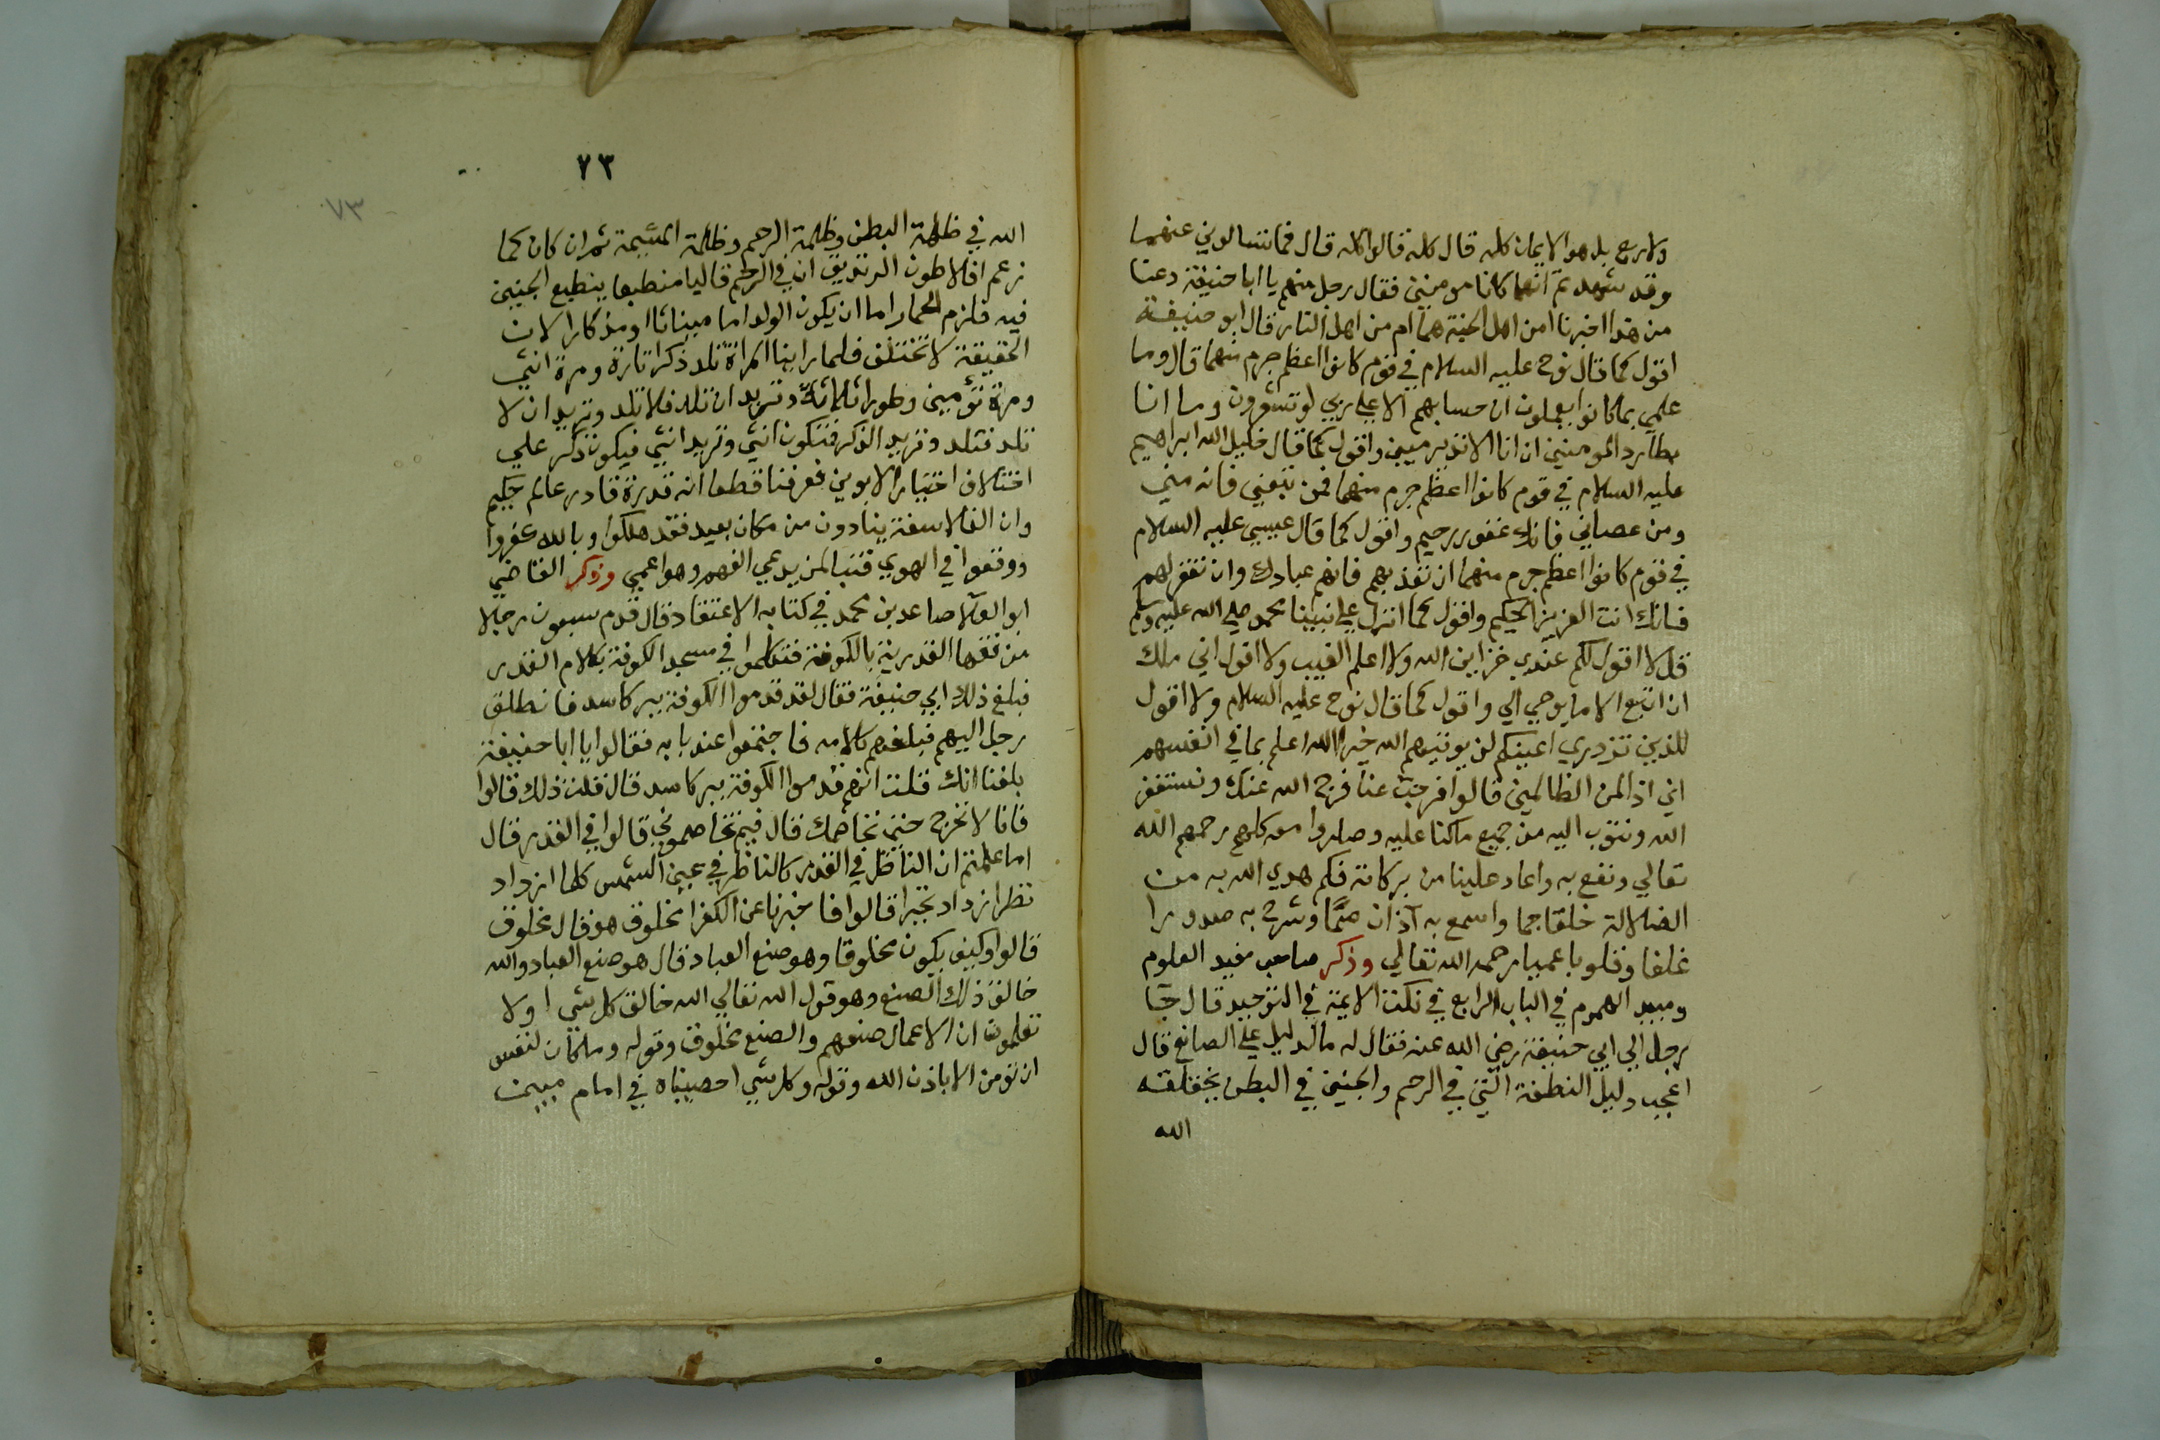 ولا ربع بل هو الايمان كله قال كله قالوا كله قال فما تسالوني عنهما
وقد شهدتم انهما كانا مومنين فقال رجل منهم يا ابا حنيفة دعنا
من هذا اخبرنا امن اهل الجنة هما ام من اهل النار قال ابو حنيفة
اقول كما قال نوح عليه السلام في قوم كانوا اعظم جرم منهما قال وما
علمي بما كانوا يعملون ان حسابهم الا علي ربي لو تشعرون وما انا
بطارد المومنين ان انا الا نذير مبين واقول كما قال خليل الله ابراهيم
عليه السلام في قوم كانوا اعظم جرم منهما فمن تبعني فانه مني
ومن عصاني فانك غفور رحيم واقول كما قال عيسي عليه السلام
في قوم كانوا اعظم جرم منهما ان تعذبهم فانهم عبادك وان تغفر لهم
فانك انت العزيز الحكيم واقول كما انزل علي نبينا محمد صلي الله عليه وسلم
قل لا اقول لكم عندي خزاين الله ولا اعلم الغيب ولا اقول اني ملك
ان اتبع الا ما يوحي الي واقول كما قال نوح عليه السلام ولا اقول
للذين تزدري اعينكم لن يوتيهم الله خيرا الله اعلم بما في انفسهم
اني اذا لمن الظالمين قالوا فرجت عنا فرج الله عنك ونستغفر
الله ونتوب اليه من جميع ما كنا عليه وصاروا معه كلهم رحمهم الله
تعالي ونفع به واعاد علينا من بركاته فكم هدي الله به من
الضلالة خلقا جما واسمع به آذان صمًّا وشرح به صدورا
غلفا وقلوبا عميا رحمه الله تعالي وذكر صاحب مفيد العلوم
ومبيد الهموم في الباب الرابع في نكت الايمة في التوحيد قال جا
رجل الي ابي حنيفة رضي الله عنه فقال له ما الدليل علي الصانع قال
اعجب دليل النطفة التي في الرحم والجنين في البطن يخلقه
الله
٧٣
٧٣
الله في ظلمة البطن وظلمة الرحم وظلمة المشيمة ثم ان كان كما
زعم افلاطون الزنديق ان في الرحم قالبا منطبعا ينطبع الجنين
فيه فلزم الحمار اما ان يكون الولد اما ميناثا او مذكارا لان
الحقيقة لا تختلف فلما راينا المراة تلد ذكرا تارة ومرة انثي
ومرة تؤمين وطورا ثلاثة وتريد ان تلد فلا تلد وتريد ان لا
تلد فتلد وتريد الذكر فتكون انثي وتريد انثي فيكون ذكر علي
اختلاف اختيار الابوين فعرفنا قطعا انه قدرة قادر عالم حكيم
وان الفلاسفة ينادون من مكان بعيد فقد هلكوا وبالله كفروا
ووقعوا في الهوي فتبا لمن يدعي الفهم وهو اعمي وذكر القاضي
ابو العلا صاعد بن محمد في كتابه الاعتقاد قال قدم سبعون رجلا
من فقها القدرية بالكوفة فتكلموا في مسجد الكوفة بكلام القدر
فبلغ ذلك ابي حنيفة فقال لقد قدموا الكوفة بير كاسد فانطلق
رجل اليهم فبلغهم كلامه فاجتمعوا عند بابه فقالوا يا ابا حنيفة
بلغنا انك قلت انهم قدموا الكوفة بير كاسد قال قلت ذلك قالوا
فانا لا نخرج حتي نخاصمك قال فيم تخاصموني قالوا في القدر قال
اما علمتم ان الناظر في القدر كالناظر في عين الشمس كلما ازداد
نظرا ازداد تحيرا قالوا فاخبرنا عن الكفر امخلوق هو قال مخلوق
قالوا وكيف يكون مخلوقا وهو صنع العباد قال هو صنع العباد والله
خالق ذلك الصنع وهو قول الله تعالي الله خالق كل شي ا ولا
تعلمون ان الاعمال صنعهم والصنع مخلوق وقوله وما كان لنفس
ان تومن الا باذن الله وقوله وكل شي احصيناه في امام مبين